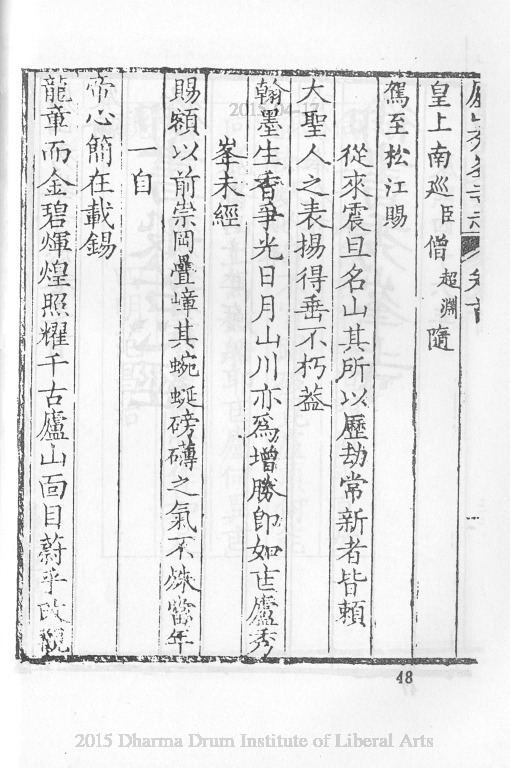 皇上南巡臣僧超淵隨
駕至松江賜
從來震旦名山其所以歷劫常新者皆賴
大聖人之表揚得垂不朽蓋
翰墨生香爭光日月山川亦為增勝即如匡廬秀
峯未經
賜額以前崇岡疊嶂其蜿蜒磅礴之氣不殊當年
一自
帝心簡在載錫
龍章而金碧煇煌照耀千古廬山面目蔚乎改觀
48
2015 Dharma Drum Institute of Liberal Arts